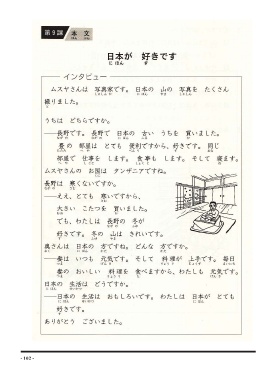 第9課
本文
ほん ぶん
日本が 好きです
に ほん す
インタビュー
ムスヤさんは 写真家です。日本の 山の 写真を たくさん
撮りました。
うちは どちらですか。
—長野です。長野で 日本の 古い うちを 買いました。
畳の 部屋は とても 便利ですから、好きです。同じ
部屋で 仕事を します。食事も します。そして 寝ます。
ムスヤさんの お国は タンザニアですね。
長野は 寒くないですか。
—ええ、とても 寒いですから、
大きい こたつを 買いました。
でも、わたしは 長野の 冬が
好きです。冬の 山は きれいです。
奥さんは 日本の 方ですね。どんな 方ですか。
—妻は いつも 元気です。そして 料理が 上手です。毎日
妻の おいしい 料理を 食べますから、わたしも 元気です。
日本の 生活は どうですか。
—日本の 生活は おもしろいです。わたしは 日本が とても
好きです。
ありがとう ございました。
- 102 -